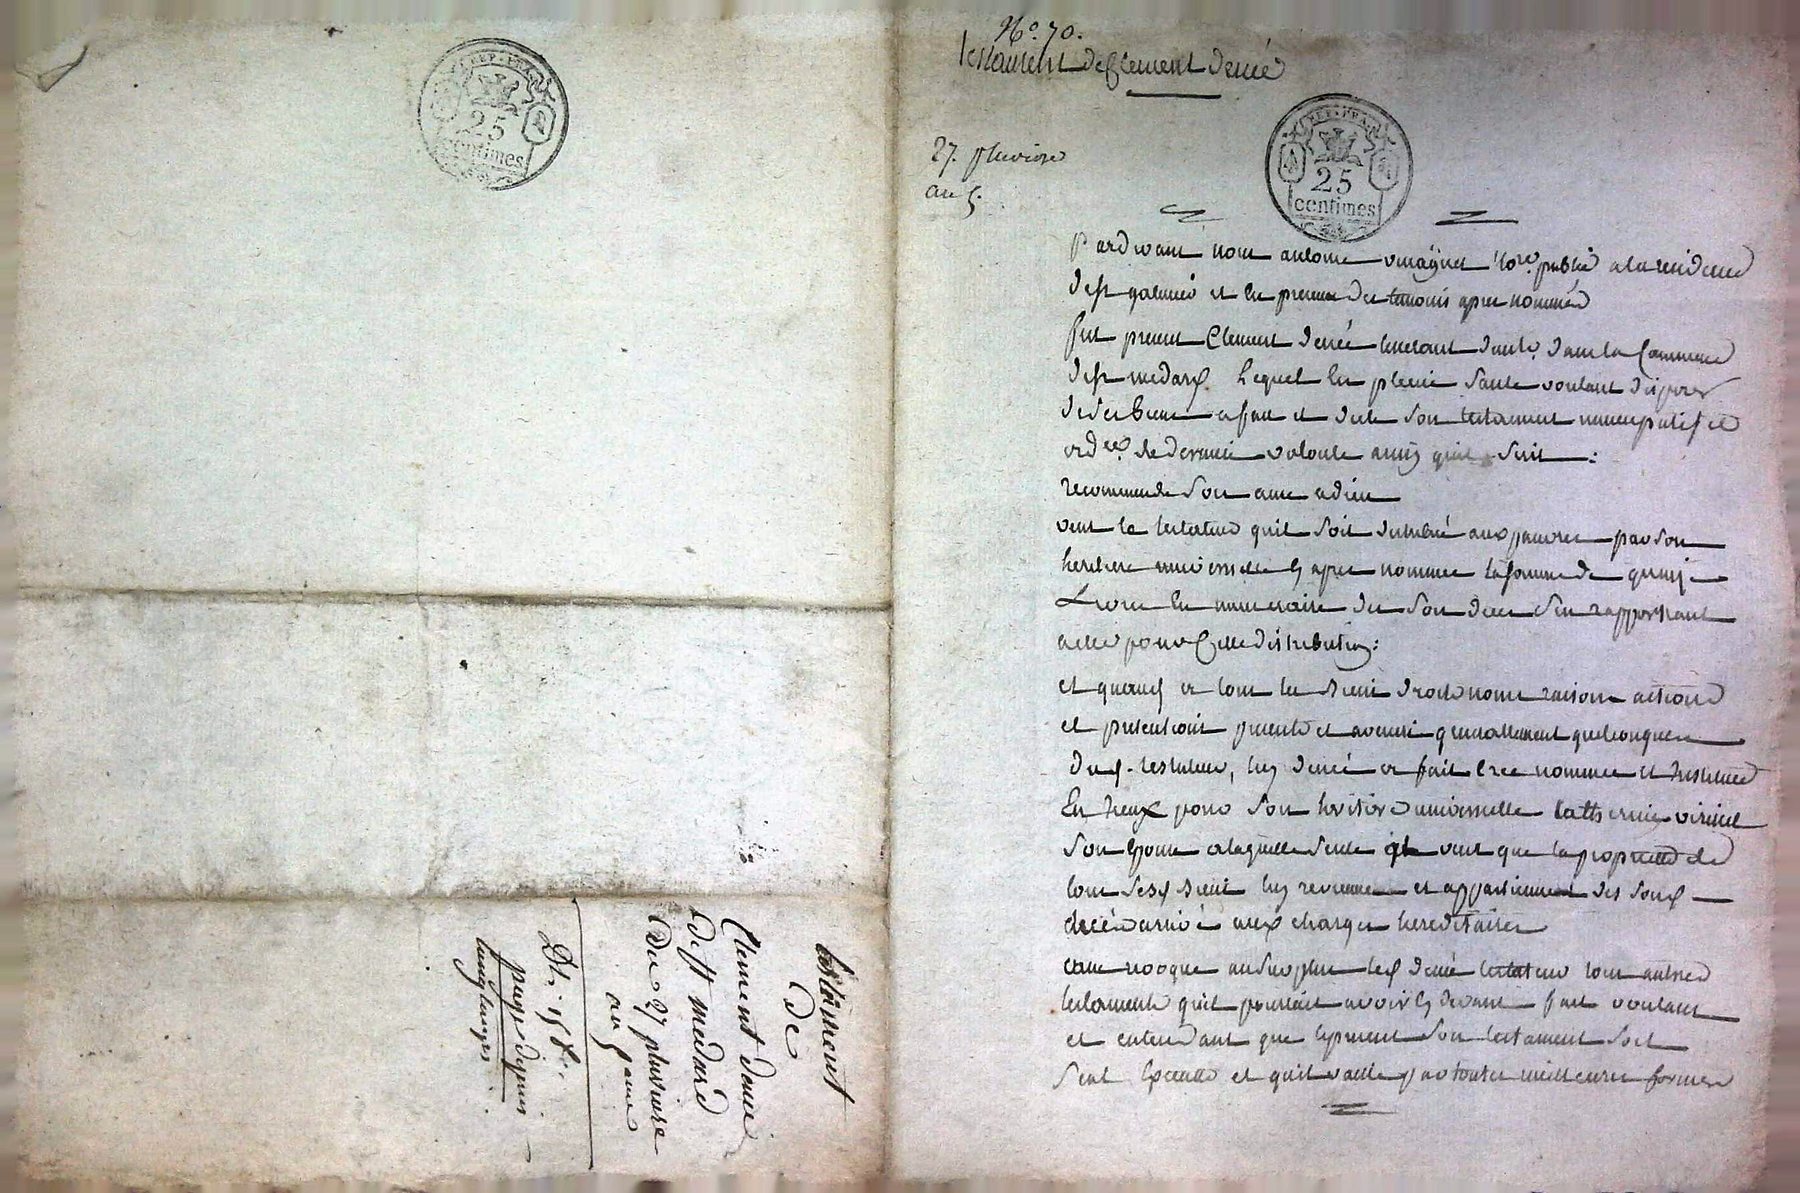 REP. FRA.
25
centimes
Testament
de
Clement denié
de St medard
Du 27 pluviose
au 5 anné
Dt. 15
page
No. 70.
testament de Clement denié
REP. FRA.
25
centimes
27. pluviose
an 5.
Pardevant nous antoine notre. public a la residence
de st galmié et en presence des temoins apres nommés
fut present Clement denié dans la Commune
de st medard. Lequel en pleine santé voulant disposer
de ses biens a fait et dicté son testament nuncupatif et
ordce. de derniere volonté ainsy quil suit:
recommande son ame a dieu
veut le testateur quil soit distribué aux pauvres par son
heritiere universelle cy apres nommée la somme de
en numeraire des son deces sen rapportant
a elle pour cette distribution:
et quand a tous les biens droits noms raisons actions
et pretentions presents et avenir generallement quelconques
dud. testateur, led denié a fait cree nommée et institué
son heritiere universelle Catherine
son epouse a laquelle seule il veut que la proprieté de
tous sesd biens luy reviennent et appartiennent des sond
decés arrivé aux charges hereditaires
casse revoque au surplus led denié testateur tous autres
testaments quil pourrait avoir cy devant fait voulant
et entendant que le present son testament soit
seul executé et quil vaille par toutes meilleures formes